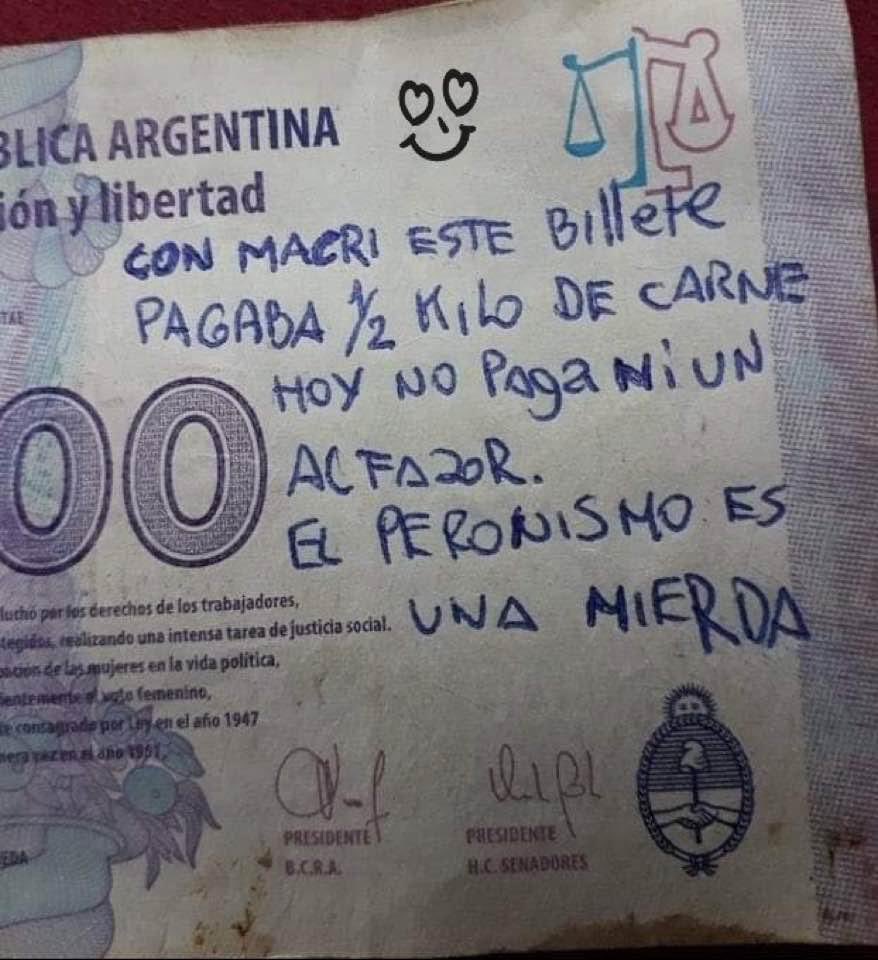 BLICA ARGENTINA
ión y libertad
CON MACRI ESTE Billete
PAGABA 1/2 KiLO DE CARNE
HOY NO PAgA Ni UN
ALFAZOR.
EL PERONISMO ES
UNA MIERDA
00
luchó por los derechos de los trabajadores,
tegidos, realizando una intensa tarea de justicia social.
pación de las mujeres en la vida política,
ientemente el voto femenino,
te consagrado por Ley en el año 1947
mera vez en el año 1951.
PRESIDENTE
B.C.R.A.
PRESIDENTE
H.C. SENADORES
EDA